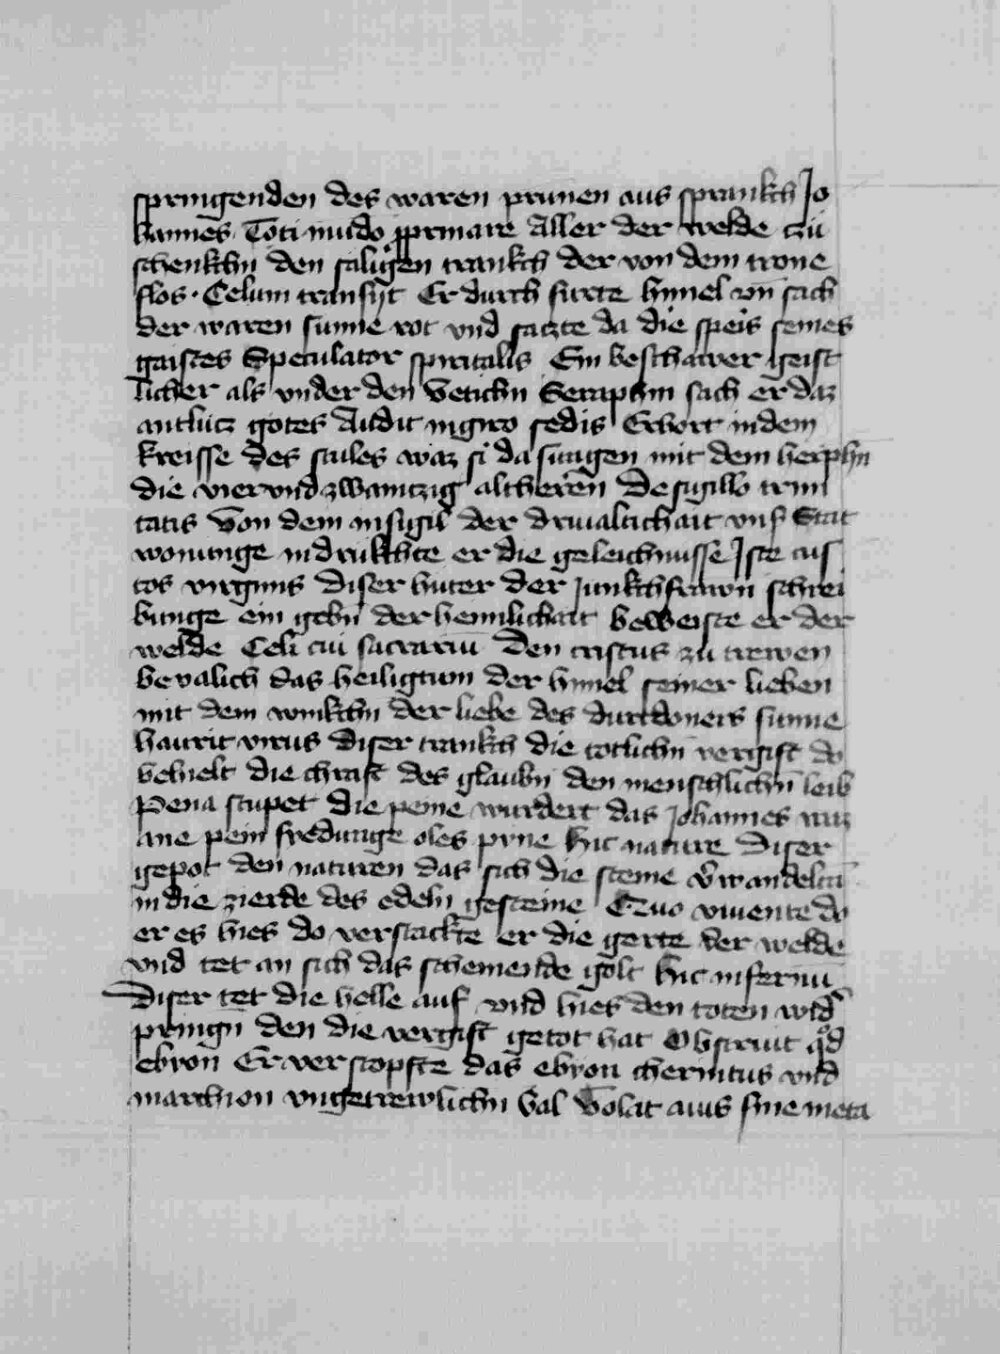 springenden des waren prunen aus sprankch Jo
hannes Toti mu̅do p̲pinare Aller der welde czu
schenkchn den saligen trankch der von dem trone
flos · Celum transijt Er durch furte himel vn̅ sach
der waren sunne rot vnd saczte da die speis seines
gaistes Speculator spiritalis Ein beschawer geist
licher als vnder den Vetichn Seraphim sach er daz
antlucz gotes Audit in giro sedis Er hort in dem
kreisse des stules waz si da sungen mit dem herphn
die viervndzwainczig altherren De sigillo trini
tatis Von dem insigil der driualtichait vnser Stat
wonunge in drukchte er die geleichnusse Iste cus
tos virginis Diser huter der Junkchfrawn schrei
bunge ein gebn̅ der heimlichait beweiste er der
welde Celi cui sacrariu̅ Den cristus zu trewen
bevalich das heiligtum der himel seiner lieben
mit dem winkchn der liebe des
haurit virus Diser trankch die totlichn vergift do
behielt die chraft des glaubn den menschlichn̅ leib
Pena stupet die peine wundert das Johannes
ane pein oles pyne Hic nature Diser
gepot den naturen das sich die steine v̾wandeltn̅
in die zierde des edeln gesteine Quo viuente do
er es hies do verstackte er die gerte der welde
vnd tet an sich das scheinende golt Hic infernu̅
Diser tet die helle auf vnd hies den toten wid̾
pringn̅ den die vergift getot hat Obstruit qͦd
ebron Er verstopfte das ebron cherintus vnd
marchion vngetrewlichn Val Volat auis sine meta